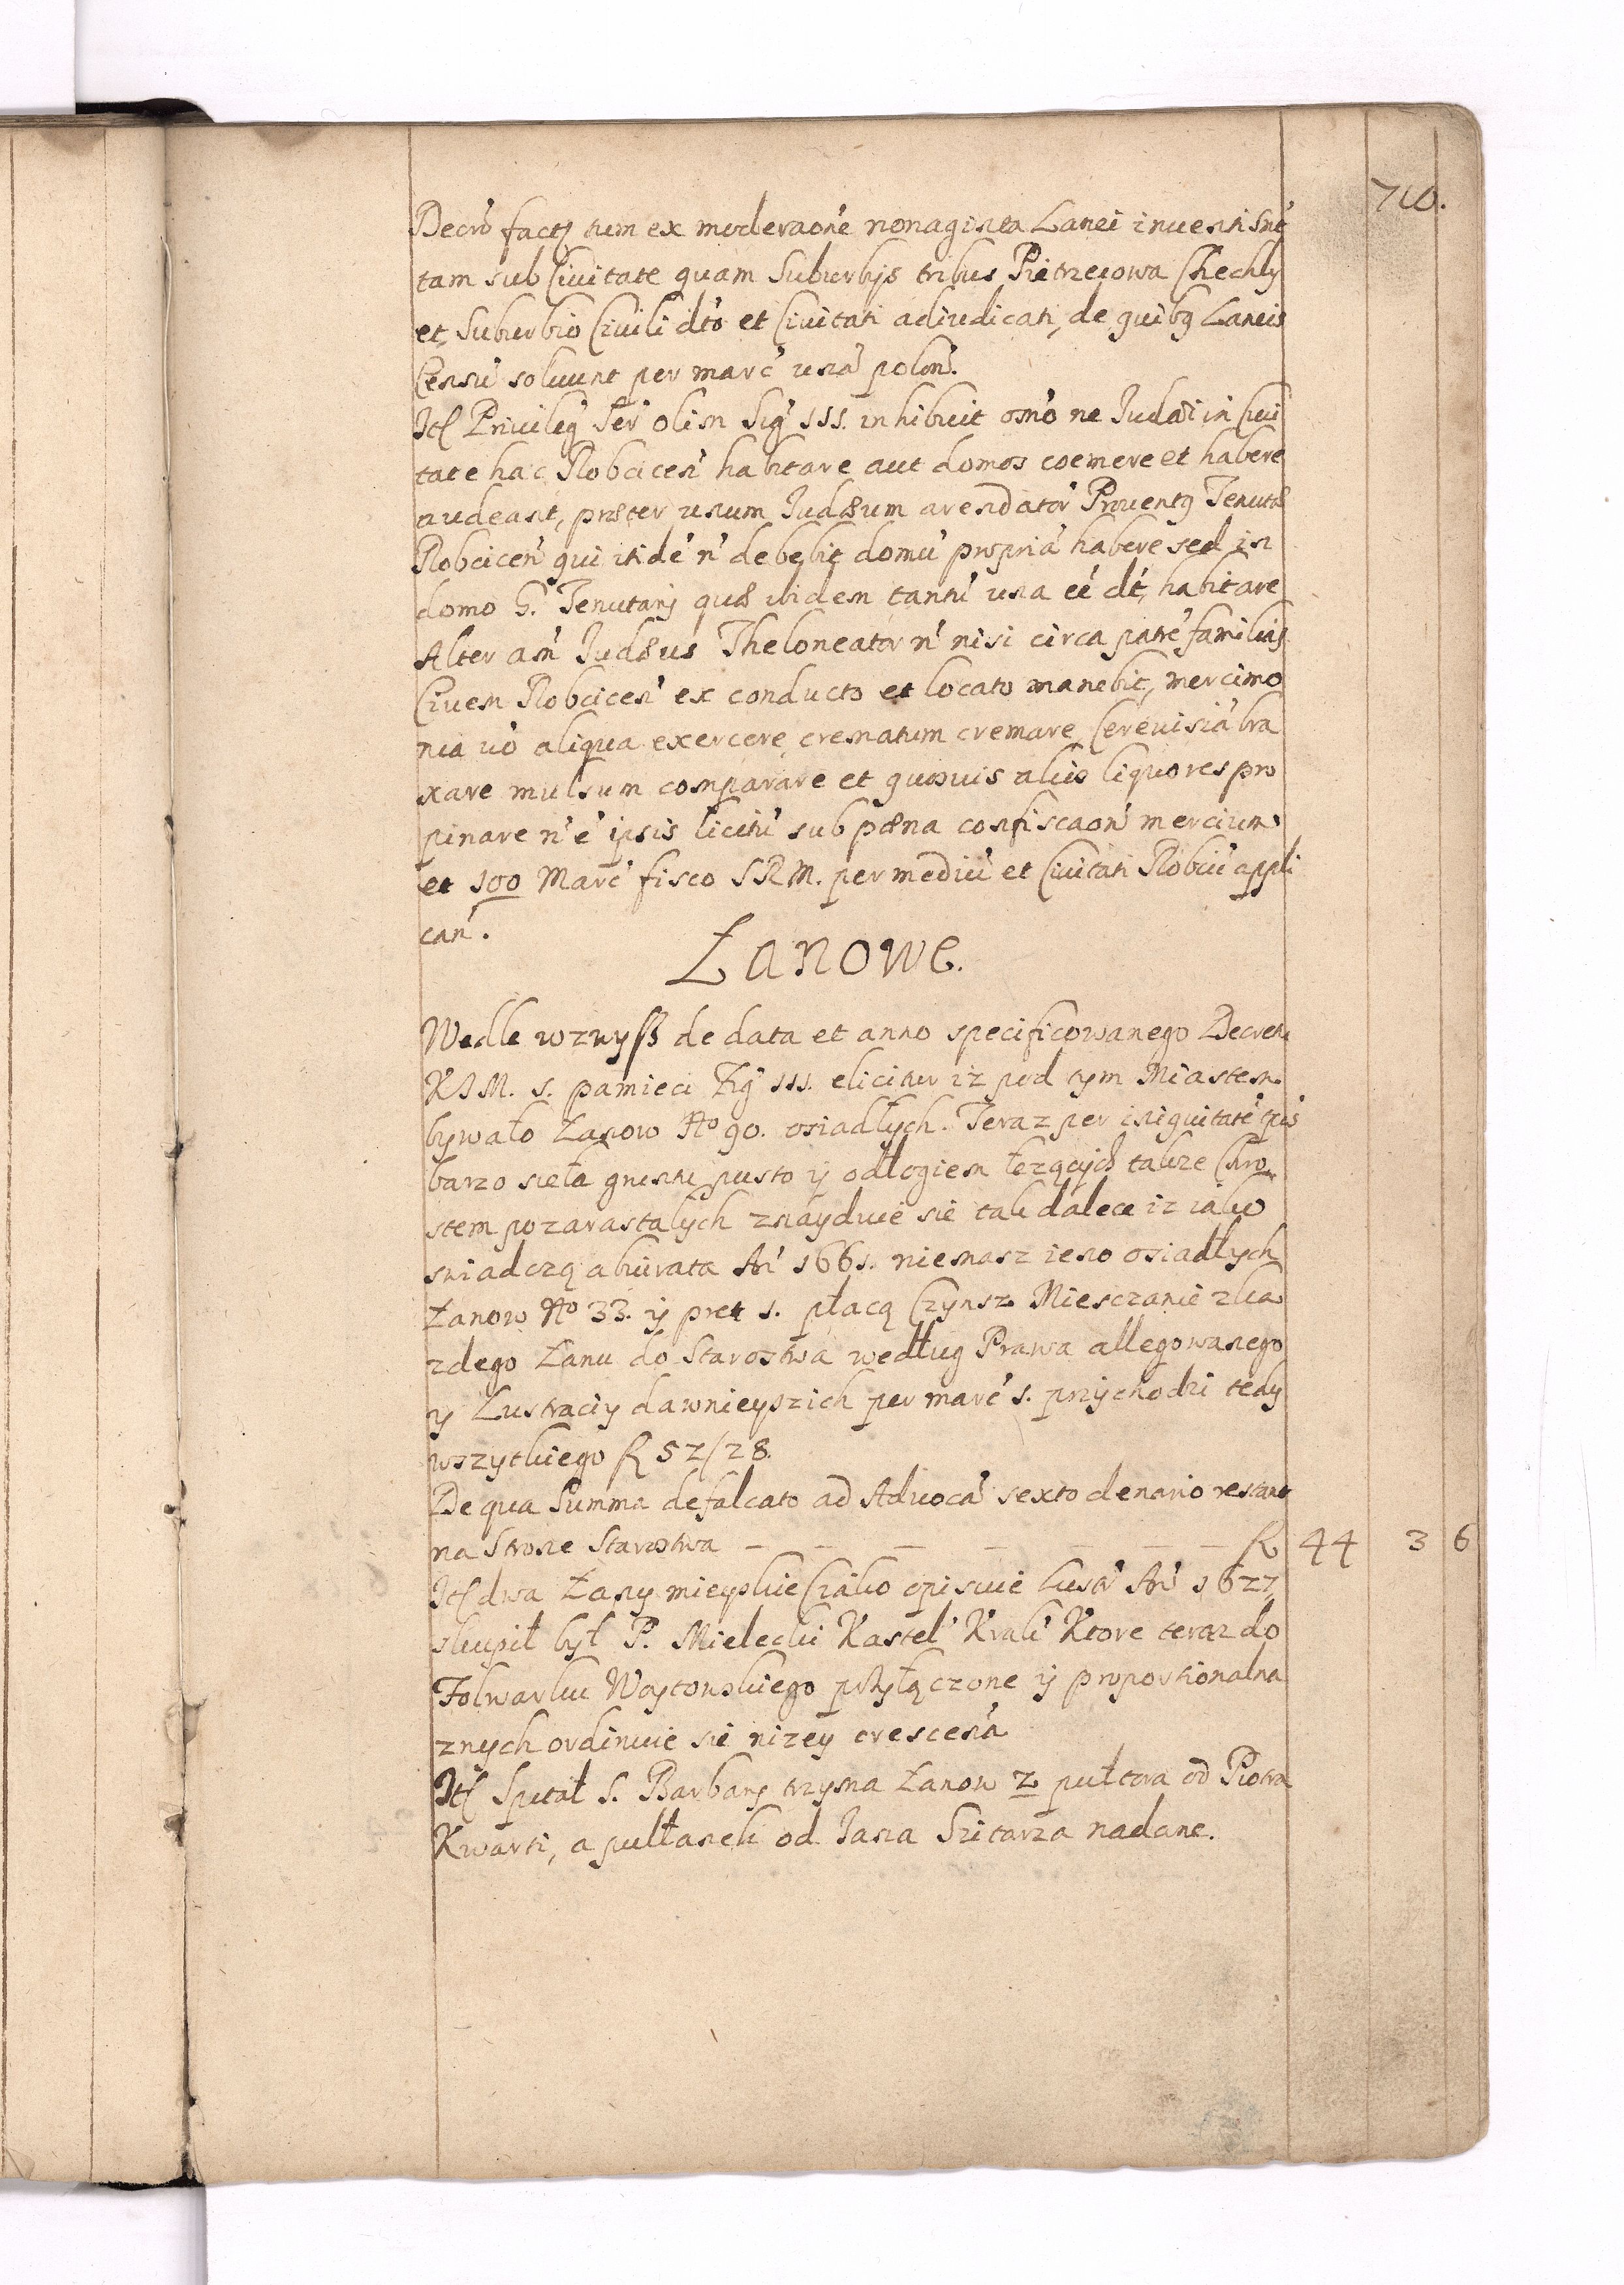 710.
Decrō facty tum ex moderaōne nonaginta Lanei inventi snt
tam sub Civitate quam Suburbijs tribus Pietrzeiowa Chechly
et Suburbio Civili dto et Civitati adiudicati, de quibq Laneis
Censū soluunt per marc unā polon.
Itē Privileg Ser olim Sig III. inhibuit omō ne Iudæi in Civi
tate hac Robcicen habitare aut domos coemere et habere
audeant, præter unum Iudæum arendator Proventq Tenutæ
Robcicen qui itidē n debebit domū propriā habere sed in
domo G. Tenutarij quæ ibidem tantū una eē dt, habitare
Alter am Iudæus Theloneator n nisi circa patrē familias
Civem Robcicen ex conducto et locato manebit, mercimo
nia vō aliqua exercere crematum cremare Cerevisiā bra
xare mulsum comparare et quosvis alios liquores pro
pinare n ē ipsis licitū sub pæna confiscaōn mercium
et 100 Marc fisco SRM. per mediū et Civitati Robcic appli
can.
Łanowe.
Wedle wzwysz de data et anno specificowanego Decretu
KJM. s. pamieci Zig III. elicitur iz pod tym Miastem
bywało Łanow No 90. osiadłych. Teraz per iniquitatē tpis
barzo sieła gruntu pusto y odłogiem lezących takze Chro
stem pozarastałych znayduie sie tak dalece iz iako
swiadczą abiurata An 1661. niemasz ieno osiadłych
Łanow No 33. y pret 1. płacą Czynsz Miesczanie z ka
zdego Łanu do Starostwa według Prawa allegowanego
y Lustraciy dawnieyszich per marc 1. przychodzi tedy
wszytkiego fl 52/28.
De qua Summa defalcato ad Advocā sexto denario restant
na Strone Starostwa — — — — — — fl 44 3 6
Itē dwa Łany mieyskie Cziako opisuie lustr An 1627
skupił był P. Mielecki Kastel Krak Ktore teraz do
Folwarku Woytowskiego przyłączone y proportionalna
z nych ordinuie sie nizey crescenā
Itē Spital S. Barbary trzyma Łanow 2 pułtora od Piotra
Kwarti, a pułłanek od Iana Szitarza nadane.